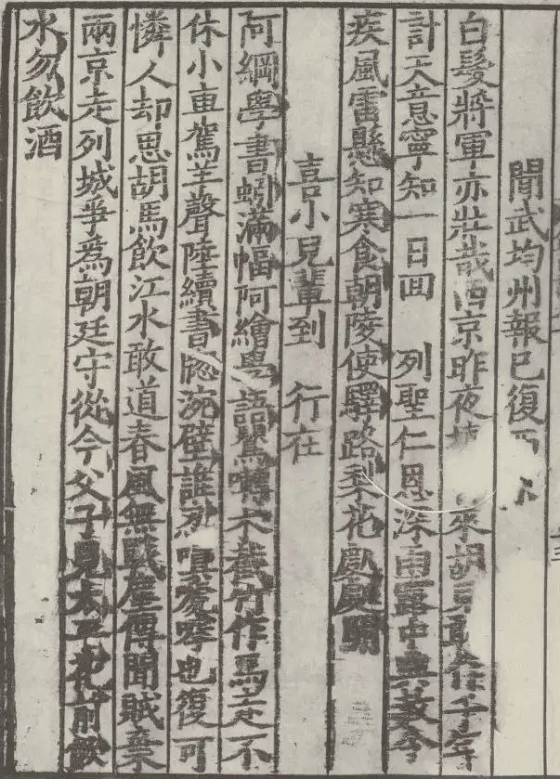 聞武均州報已復西
白髮將軍亦壯哉西京昨夜來胡兒敢作千年
計天意寧知一日回 列聖仁恩深雨露中興赦令
疾風雷懸知寒食朝陵使驛路梨花處處開
喜小兒輩到 行在
阿綱學書蚓滿幅阿繪學語鶯囀木截竹作馬走不
休小車駕羊聲陸續書窓涴壁誰忍嗔嗁嘑也復可
憐人却思胡馬飲江水敢道春風無戰塵傳聞賊棄
兩京走列城爭爲朝廷守從今父子見太平花前飲
水勿飲酒